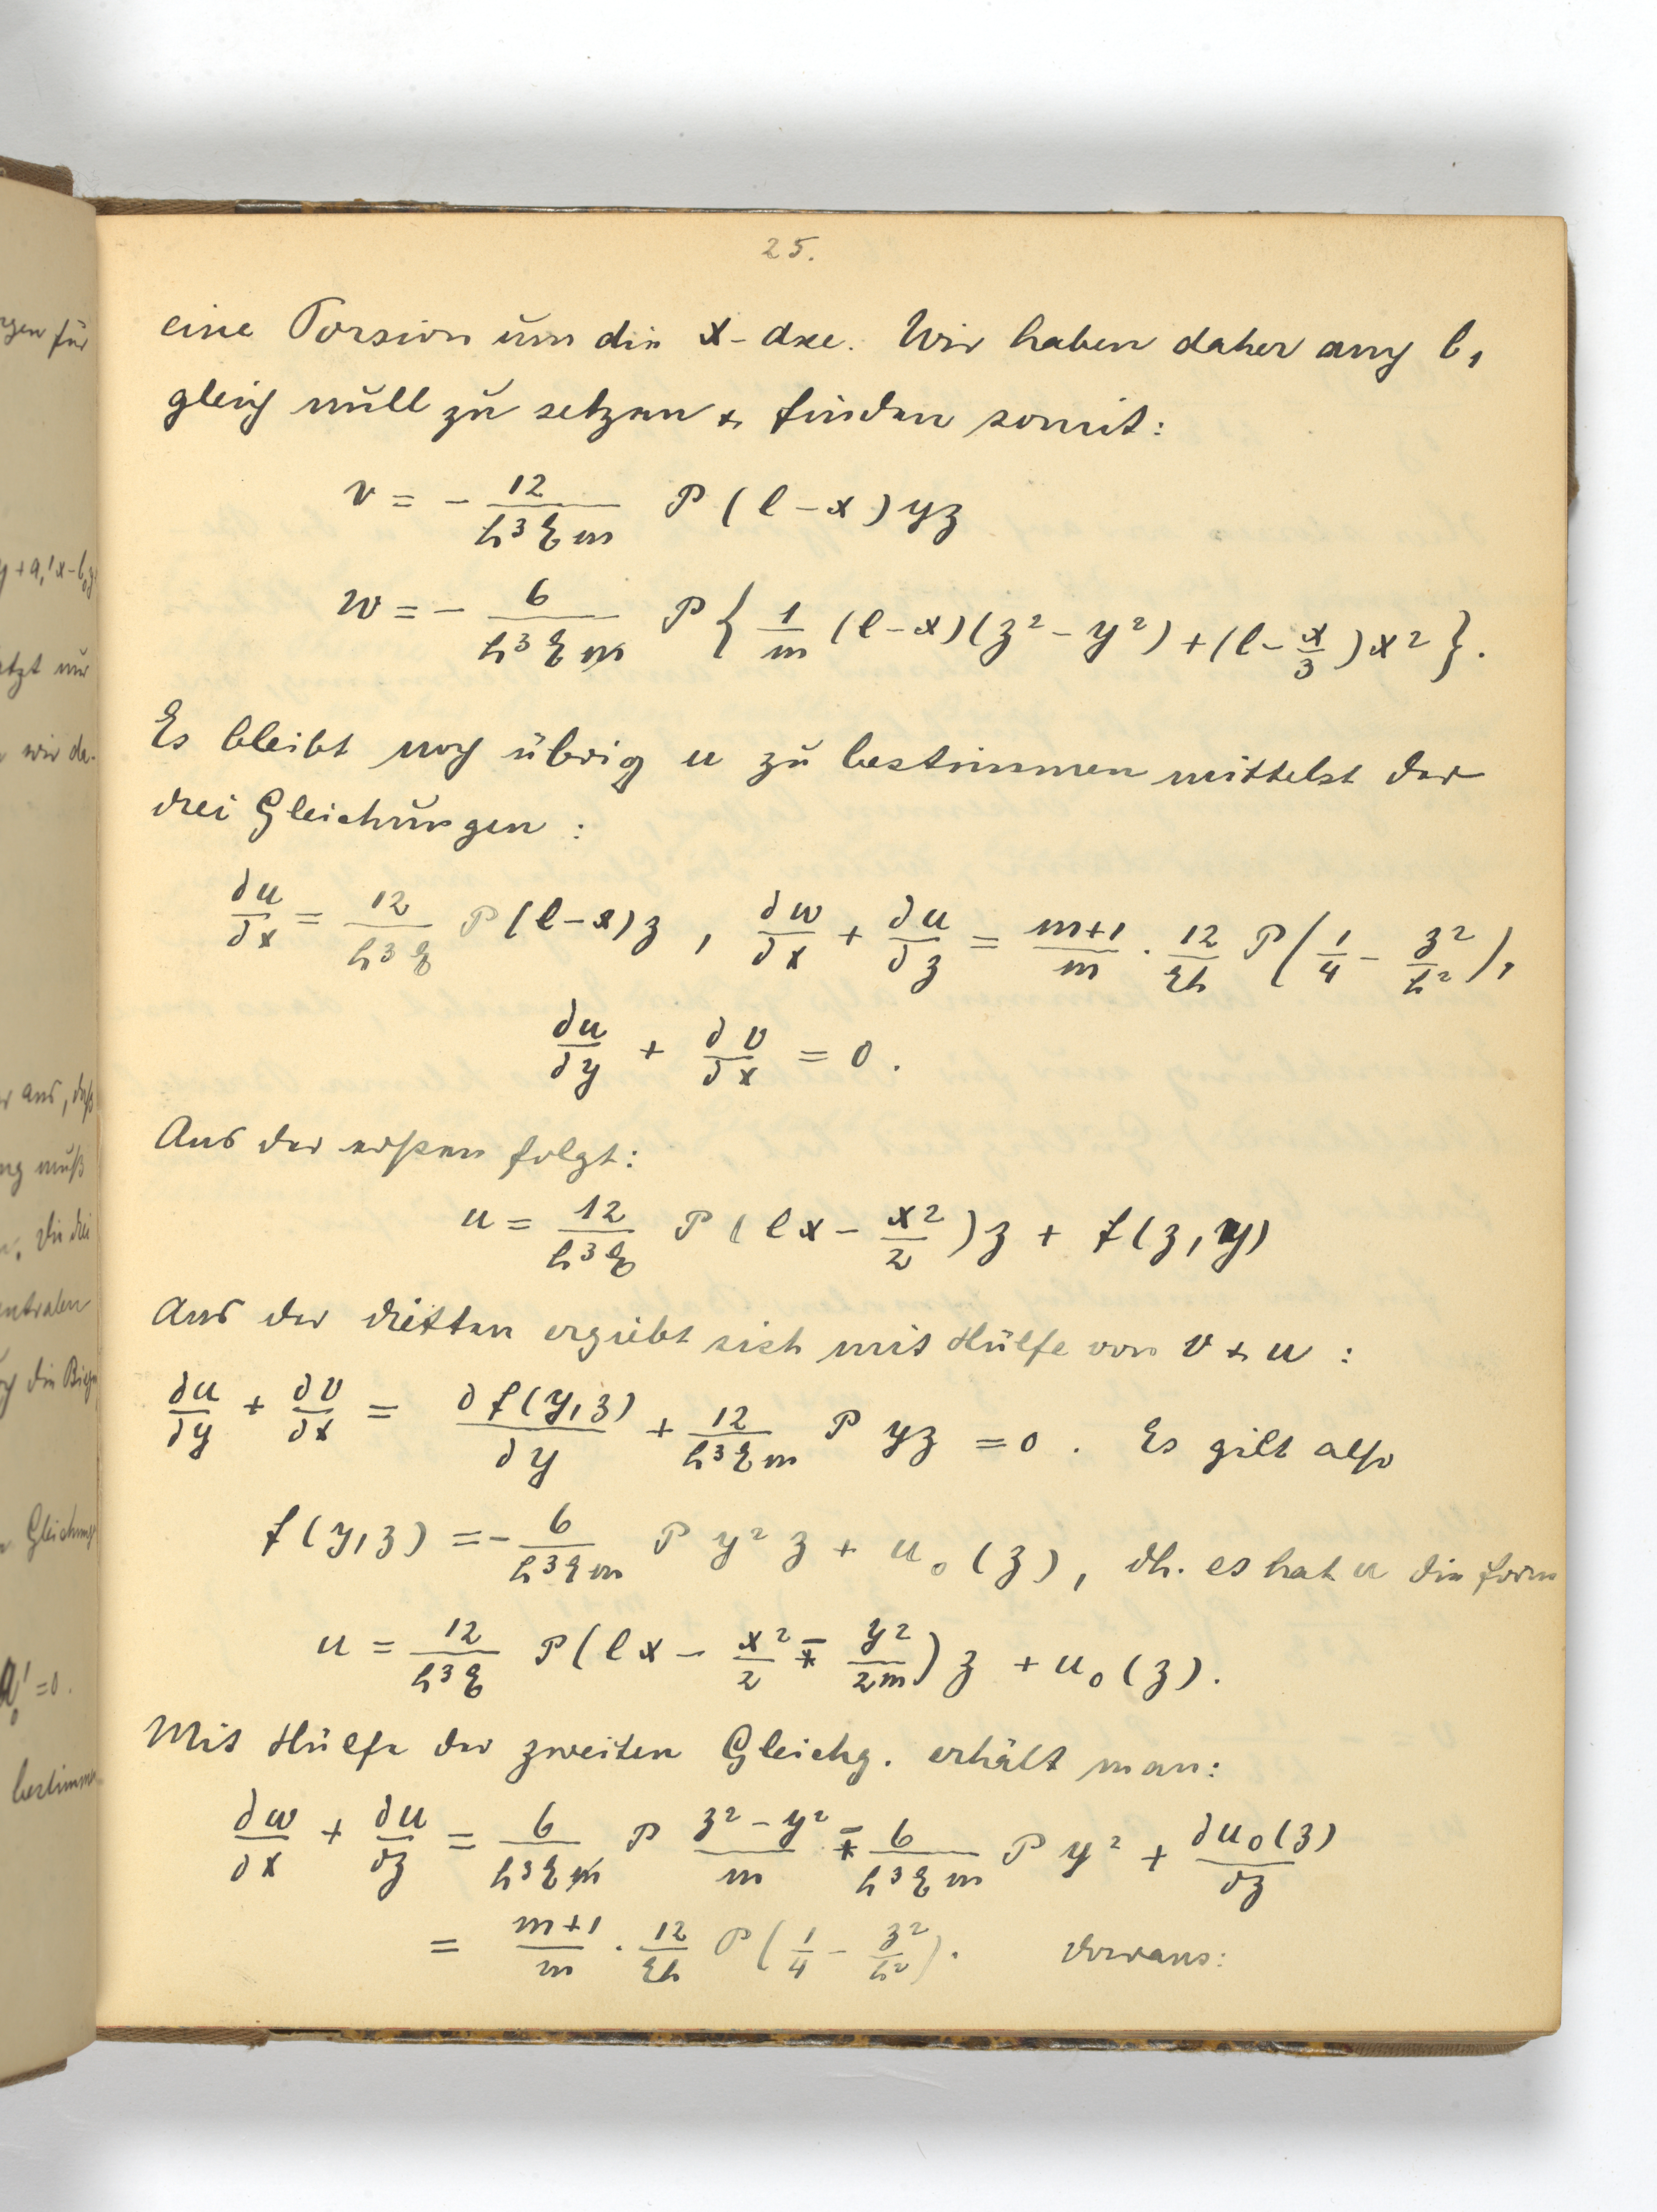 25.
eine Torsion um die x-Axe. Wir haben daher auch b₁
gleich null zu setzen & finden somit:
v = - 12/(h³ E m) P (l - x) yz
w = - 6/(h³ E m̸) P { 1/m (l - x)(z² - y²) + (l - x/3) x² }.
Es bleibt noch übrig u zu bestimmen mittelst der
drei Gleichungen:
∂u/∂x = 12/(h³ E) P (l - x) z , ∂w/∂x + ∂u/∂z = (m+1)/m · 12/(Eh) P (1/4 - z²/h²),
∂u/∂y + ∂v/∂x = 0.
Aus der ersten folgt:
u = 12/(h³ E) P (lx - x²/2) z + f(z, y)
Aus der dritten ergiebt sich mit Hülfe von v & u :
∂u/∂y + ∂v/∂x = ∂f(y, z)/∂y + 12/(h³ E m) P yz = 0 . Es gilt also
f(y, z) = - 6/(h³ E m) P y² z + u₀(z), dh. es hat u die Form
u = 12/(h³ E) P (lx - x²/2 - y²/2m) z + u₀(z).
Mit Hülfe der zweiten Gleichg. erhält man:
∂w/∂x + ∂u/∂z = 6/(h³ E m̸) P (z² - y²)/m - 6/(h³ E m) P y² + ∂u₀(z)/∂z
= (m+1)/m · 12/(Eh) P (1/4 - z²/h²). daraus:
rgen für
y + a₁'x - b₀z
etzt nur
wir da-
r aus, daß
ng muß
Die drei
entralen
die Biegu
Gleichung
a₀' = 0.
bestimm